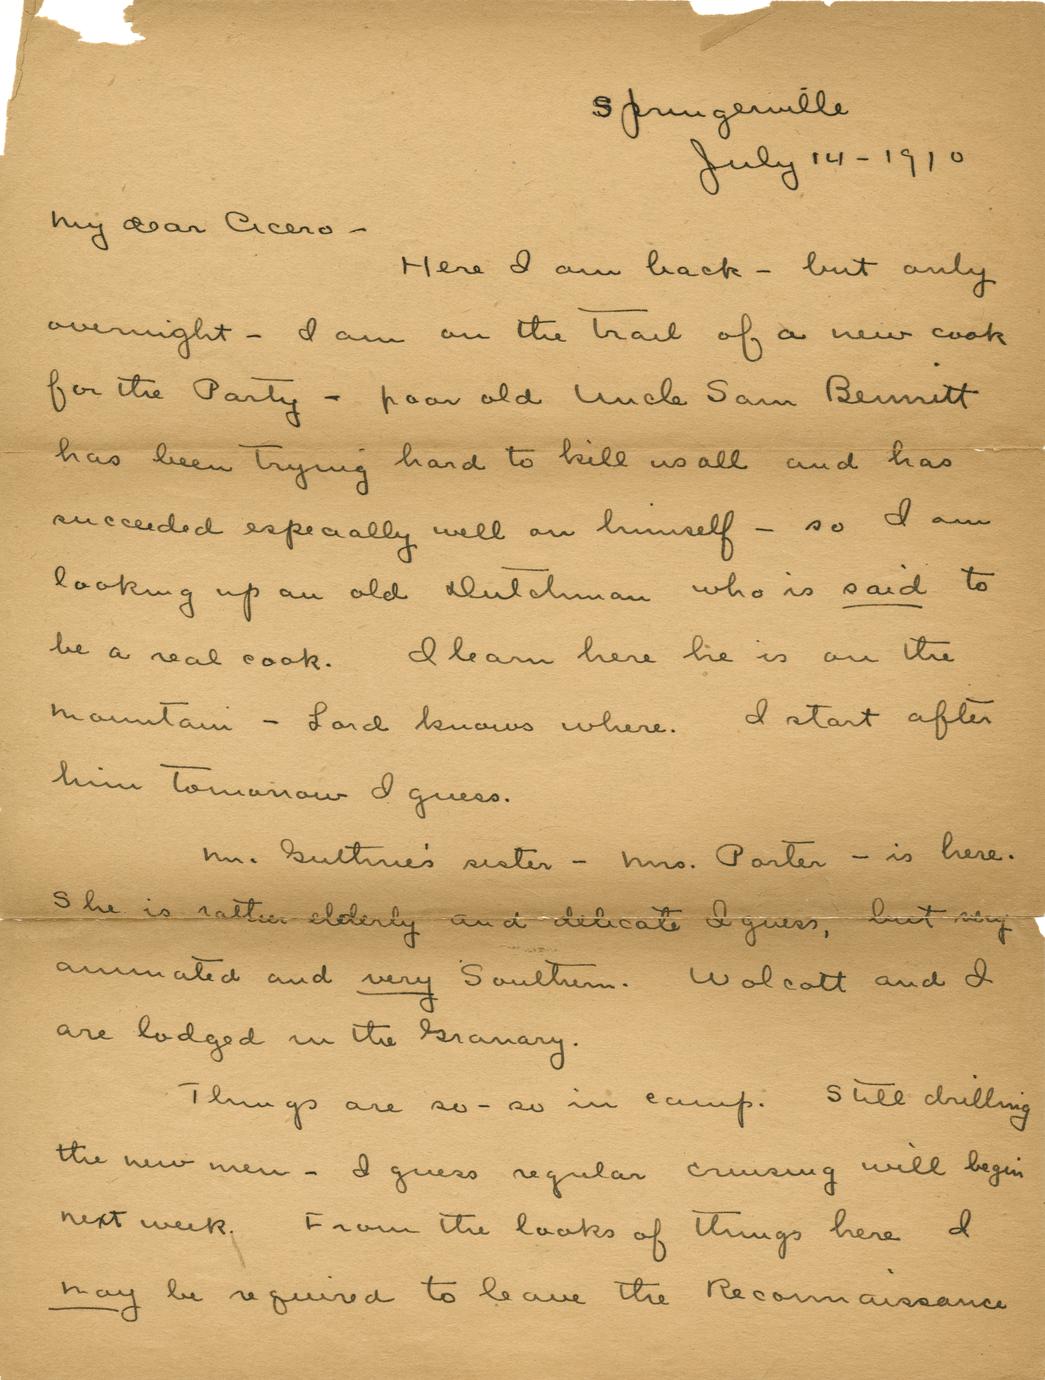 Springerville
July 14 - 1910
My dear Cicero -
Here I am back - but only
overnight - I am on the trail of a new cook
for the Party - poor old Uncle Sam Bennitt
has been trying hard to kill us all and has
succeeded especially well on himself - so I am
looking up an old Dutchman who is said to
be a real cook. I learn here he is on the
mountain - Lord knows where. I start after
him tomorrow I guess.
Mr. Guthrie's sister - Mrs. Porter - is here.
She is rather elderly and delicate I guess, but very
animated and very Southern. Wolcott and I
are lodged in the Granary.
Things are so-so in camp. Still drilling
the new men - I guess regular cruising will begin
next week. From the looks of things here I
may be required to leave the Reconnaissance